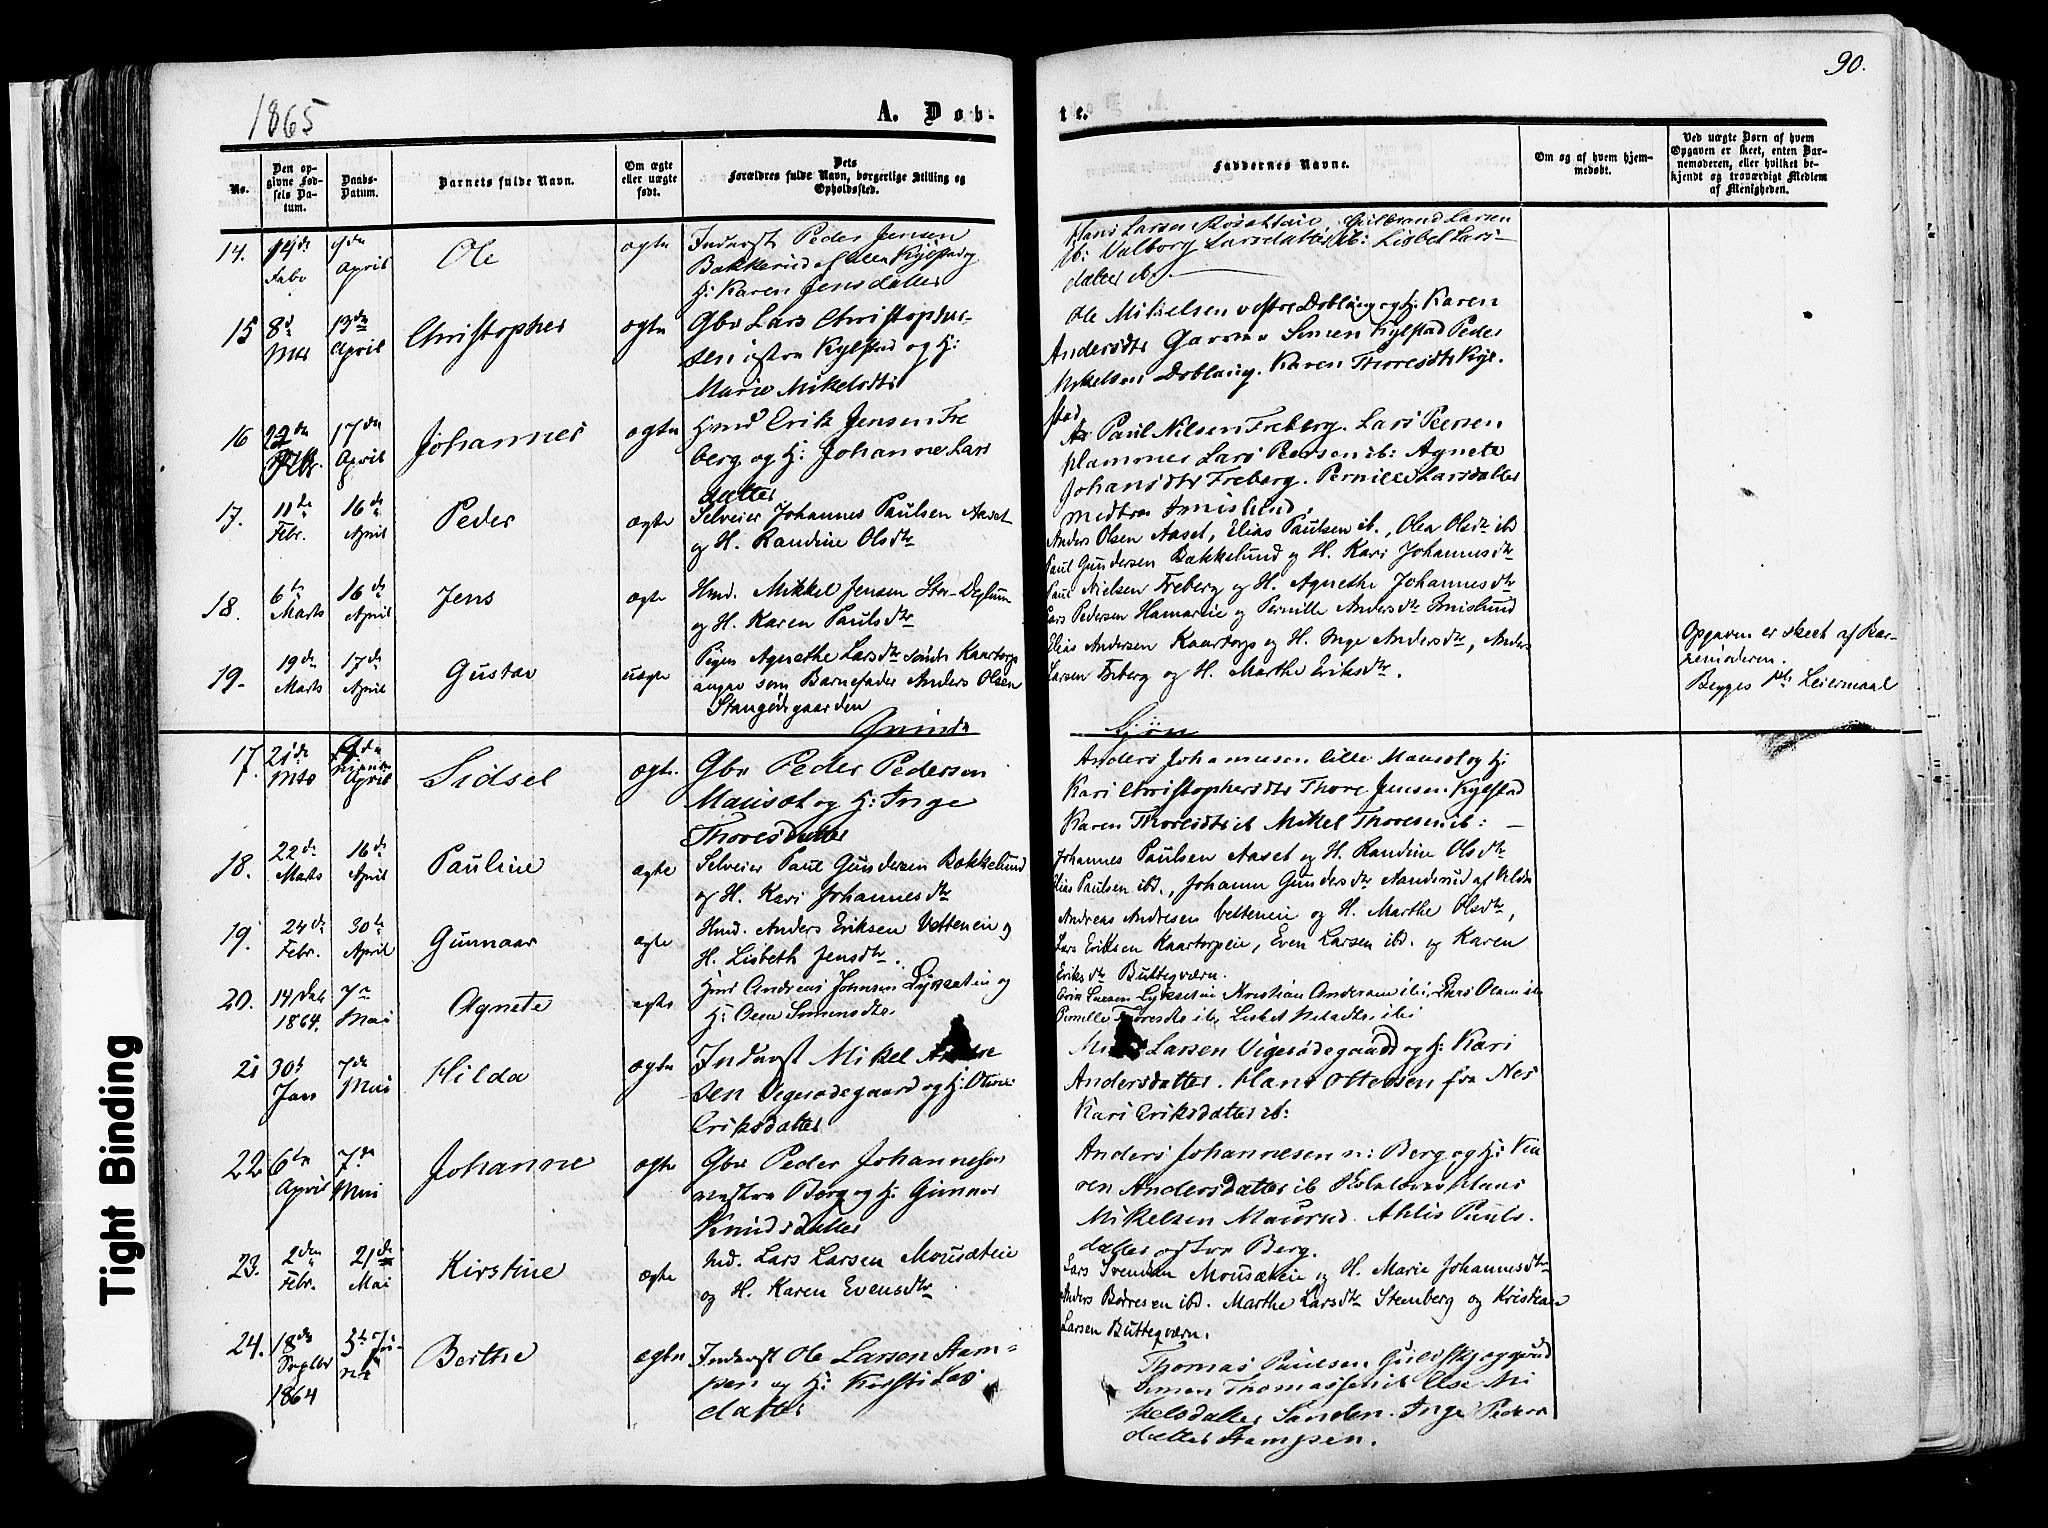 90.
1865
A. Døb-
te.
No.
Den op-
givne Fød-
sels Da-
tum.
Daabs-
Datum.
Barnets fulde Navn.
Om ægte
eller uægte
født.
Dets
Forældres fulde Navn, borgerlige Stilling og
Opholdssted.
Faddernes Navne.
Om og af hvem hjem-
medøbt.
Ved uægte Børn af hvem
Opgaven er skeet, enten Bar-
nemoderen, eller hvilket be-
kjendt og troværdigt Medlem
af Menigheden.
14.
14de
April
Ole
ægte
Inderst Peder Jensen
Bækkerud
H: Karen Jensdatter
Hans Larsen Gulbrand Larsen
ib: Valborg Larsdatter ib: Lisbet Lars-
datter ib.
15
8de
Mts
13de
April
Christopher
ægte
Gbr Lars Christopher-
sen Kylstad og H:
Marie Mikelsdtr
Ole Mikelsen vestre Doblaug og H: Karen
Andersdtr Simen Kylstad Peder
Mikelsen Doblaug. Karen Thoresdtr Kyl-
stad
16
17de
April
Johannes
ægte
Hmd Erik Jensen Fre
berg og H: Johanne Lars
datter
Paul Nilsen Freberg. Lars Peersen
Hammer Lars Peersen ib: Agnete
Johansdtr Freberg. Pernille Larsdatter
Imislund.
17.
11te
Febr.
16de
April
Peder
ægte
Selveier Johannes Paulsen Aaset
og H. Randine Olsdtr
Anders Olsen Aaset, Elias Paulsen ib., Olea Olsdtr ibd
Paul Gundersen Bækkelund og H. Kari Johannesdtr
18.
6te
Marts
16de
April
Jens
ægte
Hmd. Mikkel Jensen Deglum
og H. Karen Paulsdtr
Paul Nielsen Freberg og H. Agnethe Johannesdtr
Lars Pedersen Hamareie og Pernille Andersdtr Imislund
19.
19de
Marts
17de
April
Gustav
uægte
Pigen Agnethe Larsdtr søndr Kaartorp
angav som Barnefader Anders Olsen
Stangødegaarden
Elias Andersen Kaartorp og H. Inge Andersdtr, Anders
Larsen Freberg og H. Marthe Eriksdtr.
Opgaven er skeet af Bar-
nemoderen.
Begges 1ste Leiermaal
17.
21de
Mts
April
Sidsel
ægte.
Gbr Peder Pedersen
Mausæt og H: Inge
Thoresdatter
Anders Johannesen lille Mausæt og H:
Kari Christophersdtr Thore Jensen Kylstad
Karen Thoresdtr ib Mikel Thoresen ib: -
18.
22de
Marts
16de
April
Pauline
ægte
Selveier Paul Gundersen Bækkelund
og H. Kari Johannesdtr
Johannes Paulsen Aaset og H. Randine Olsdtr
Elias Paulsen ibd., Johann Gundersdtr
19.
24de
Febr.
30te
April
Gunnaar
ægte
Hmd. Anders Eriksen Vetteneie og
H. Lisbeth Jensdtr.
Andreas Andresen Vetteneie og H. Marthe Olsdtr,
Lars Eriksen Kaartorpeie, Even Larsen ibd. og Karen
Eriksdtr Buttegværn.
20.
14
1864.
7de
Mai
Agnete
ægte
Hmd Andreas Johnsen og
H: Olene Simensdtr.
Kristian Andersen
21
30te
Jan
7de
Mai
Hilda
ægte
Inderst Mikel Andre
sen Vegesødegaard og H:
Eriksdatter
Larsen Vegesødegaard og H: Kari
Andersdatter. Hans Ottersen fra Nes
Kari Eriksdatter ib:
22
6te
April
7de
Mai
Johanne
ægte
Gbr Peder Johannesen
vestre Berg og H: Gunnor
Knudsdatter
Anders Johannesen n: Berg og H: Ka
ren Andersdatter ib Hans
Mikelsen Maurud. Ahlis Pauls-
datter østre Berg.
23.
2den
Febr.
21de
Mai
Kirstine
ægte
Hmd. Lars Larsen Mousæteie
og H. Karen Evensdtr.
Lars Svendsen Mousæteie og H. Marie Johannesdtr
Anders Børresen ibd. Marthe Larsdtr Stenberg og Kristian
Larsen Buttegværn.
24.
18de
Septbr
1864
5te Ju-
ni
Berthe
ægte
Inderst Ole Larsen Stam-
pen og H: Kirsti Lars
datter
Thomas Paulsen
Simen Thomassen ib Else Mi
kelsdatter Sanden. Inge Peders
datter Stampen.
Tight Binding